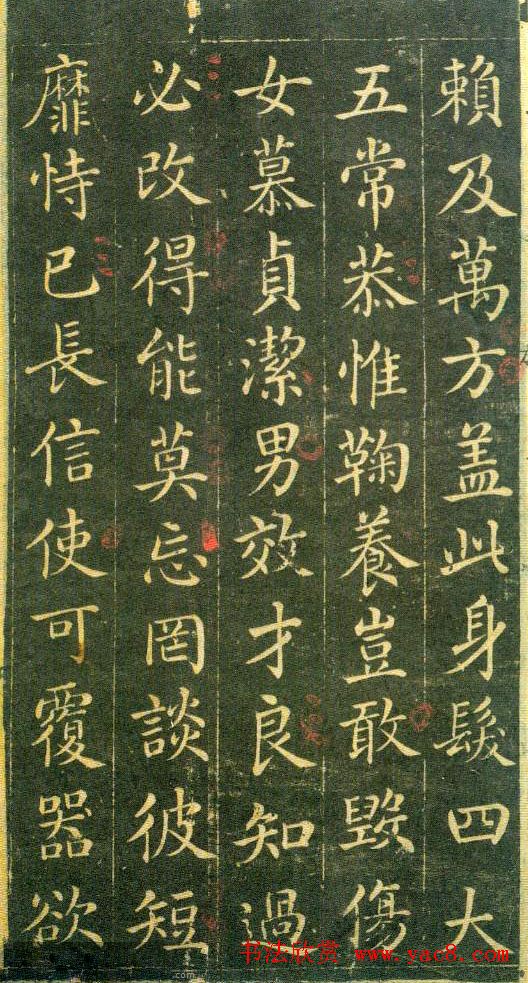 賴及萬方盖此身髮四大
五常恭惟鞠養豈敢毀傷
女慕貞潔男效才良知過
必改得能莫忘罔談彼短
靡恃己長信使可覆器欲
书法欣赏 www.yac8.com